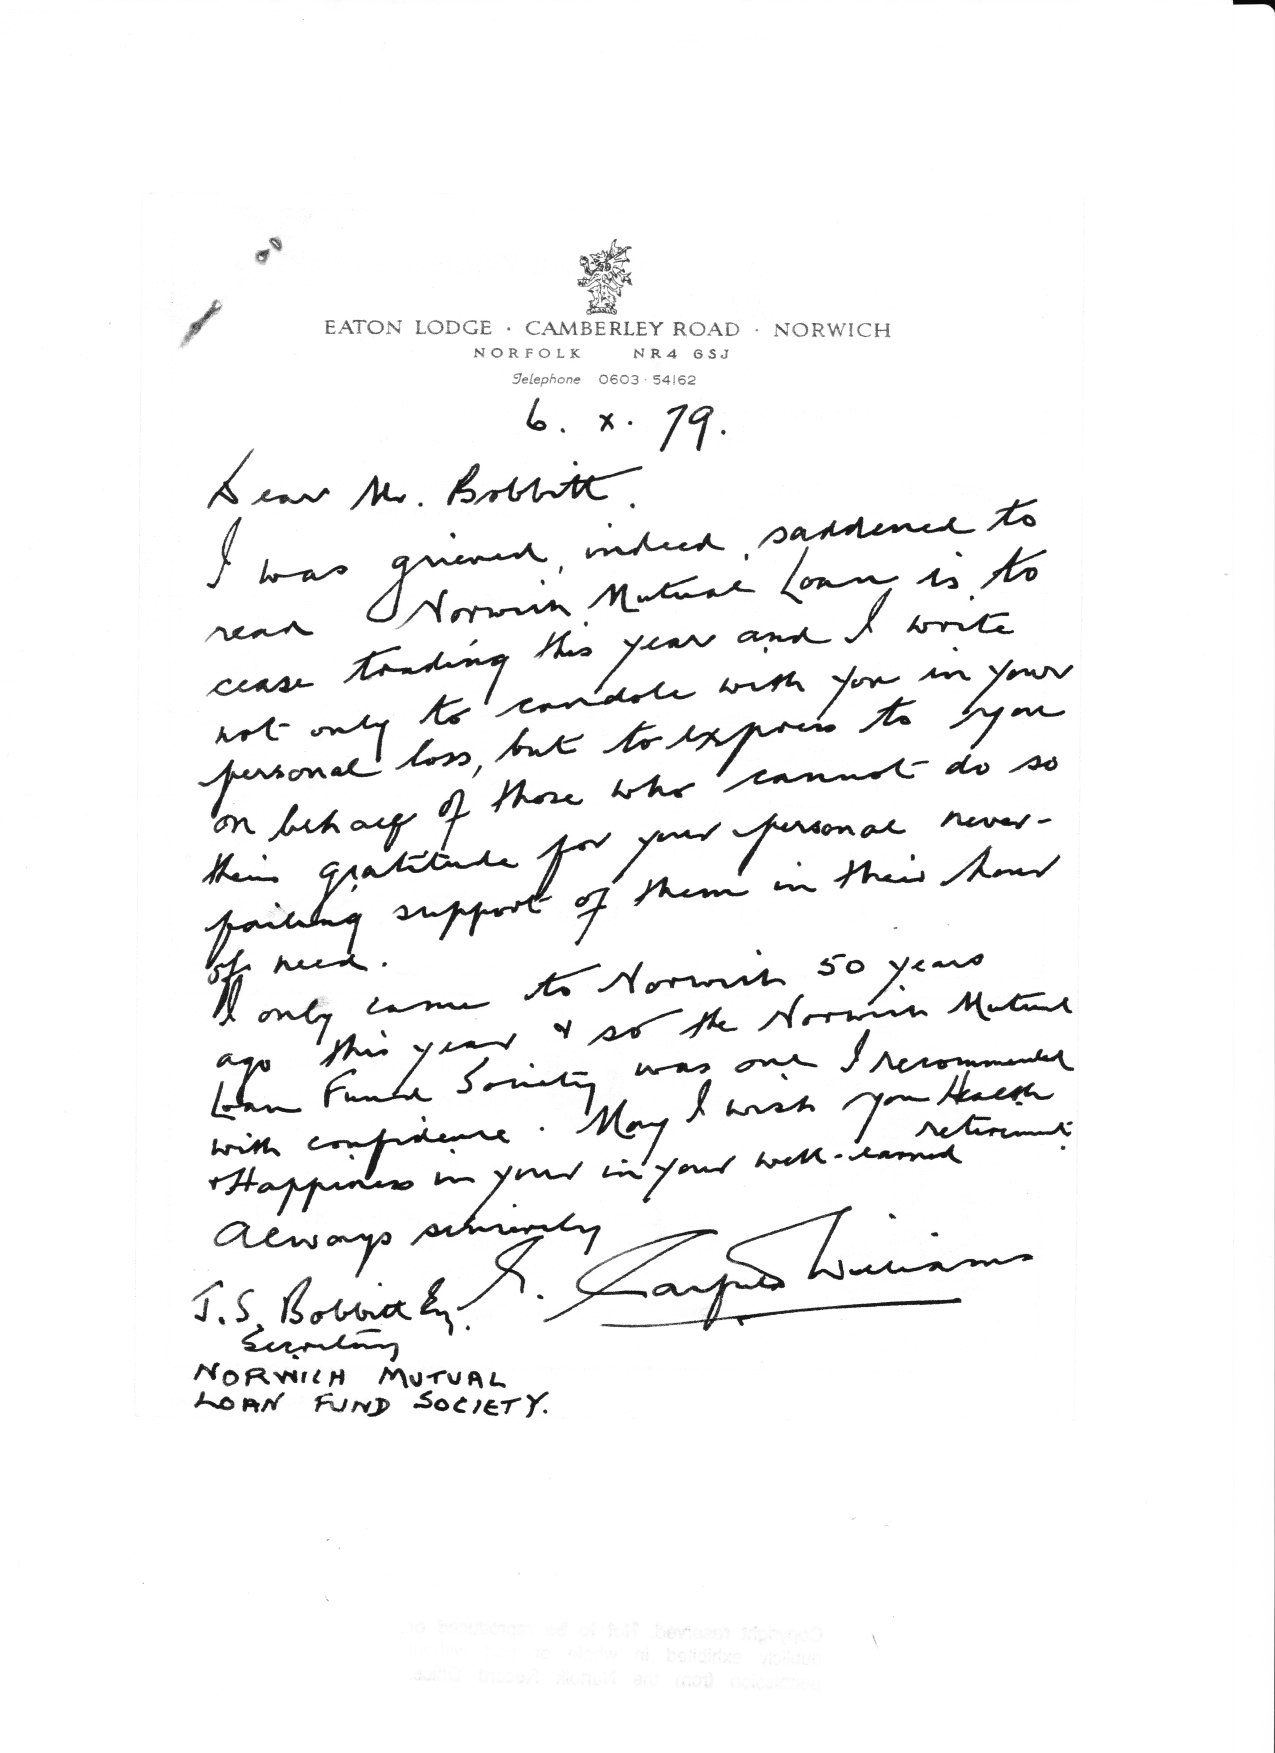 EATON LODGE · CAMBERLEY ROAD · NORWICH
NORFOLK NR4 6SJ
Telephone 0603·54162
6. x. 79.
Dear Mr. Bobbitt.
I was grieved, indeed, saddened to
read Norwich Mutual Loan is to
cease trading this year and I write
not only to condole with you in your
personal loss, but to express to you
on behalf of those who cannot do so
their gratitude for your personal never-
failing support of them in their hour
of need.
I only came to Norwich 50 years
ago this year & so the Norwich Mutual
Loan Fund Society was one I recommended
with confidence. May I wish you Health
+ Happiness in your in your well-earned retirement.
Always sincerely
Williams
J. S. Bobbitt Esq.
Secretary
NORWICH MUTUAL
LOAN FUND SOCIETY.
Copyright reserved Not to be reproduced or